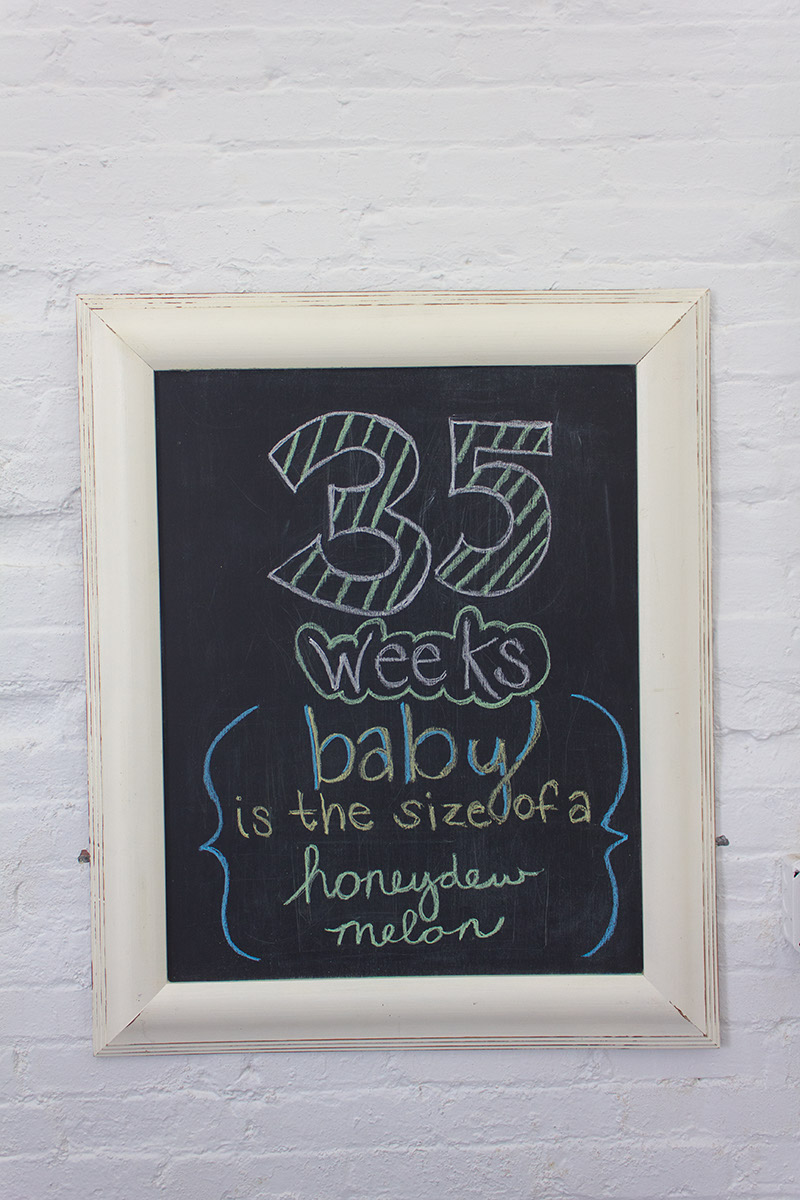 35
weeks
baby
is the size of a
honeydew
melon